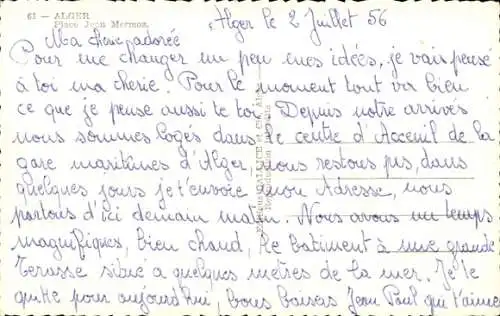 61 - ALGER
Place Jean Mermoz.
Alger le 2 Juillet 56
Ma cherie adorée
Pour me changer un peu mes idées, je vais pensé
à toi ma cherie. Pour le moment tout va bien
ce que je pense aussi te toi. Depuis notre arrivés
nous sommes logés dans le centre d'Acceuil de la
gare maritimes d'Alger, nous restons pas, dans
quelques jours je t'envoie mon Adresse, nous
partons d'ici demain matin. Nous avons un temps
magnifiques, bien chaud, Le batiment à une grande
Terasse situé a quelques metres de la mer. Je te
quitte pour aujourd'hui, bons baisers Jean Paul qui t'aime